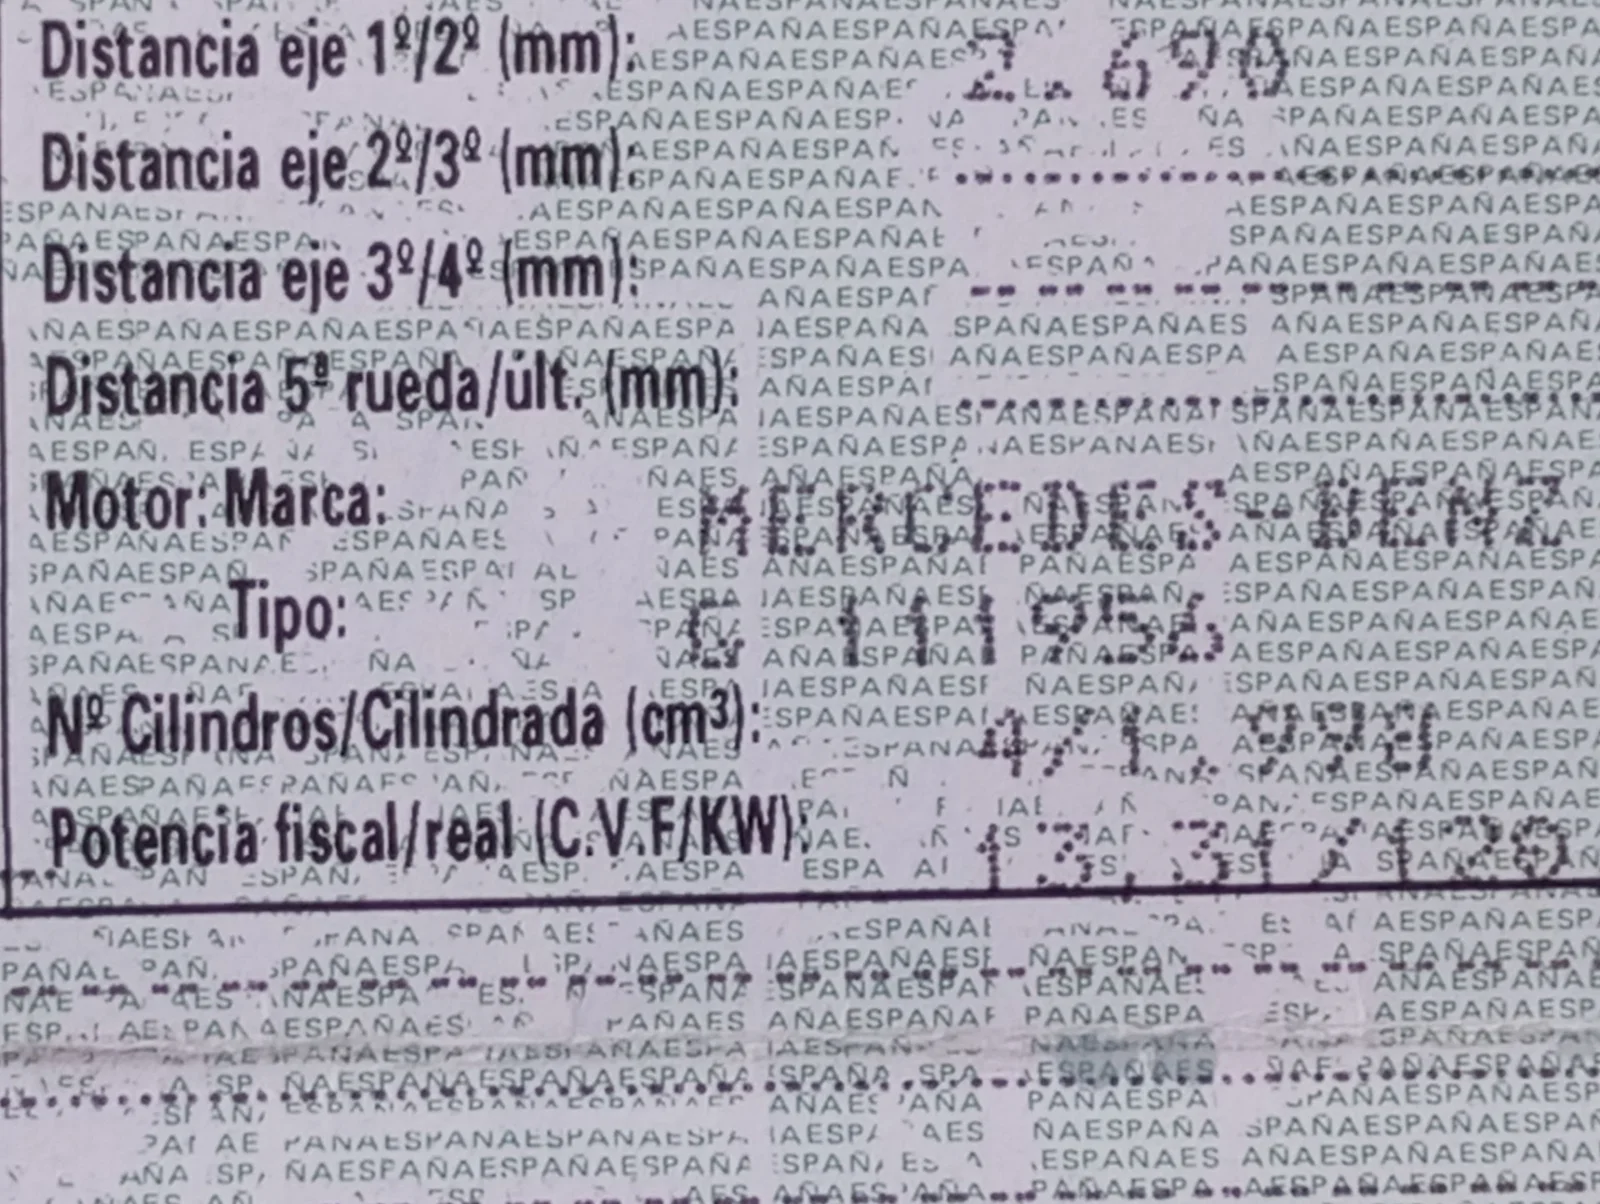 Distancia eje 1º/2º (mm): 2.690
Distancia eje 2º/3º (mm):
Distancia eje 3º/4º (mm):
Distancia 5ª rueda/últ. (mm):
Motor: Marca: MERCEDES-BENZ
Tipo: G 111956
Nº Cilindros/Cilindrada (cm³): 4/1.998
Potencia fiscal/real (C.V.F/KW): 13,31/120